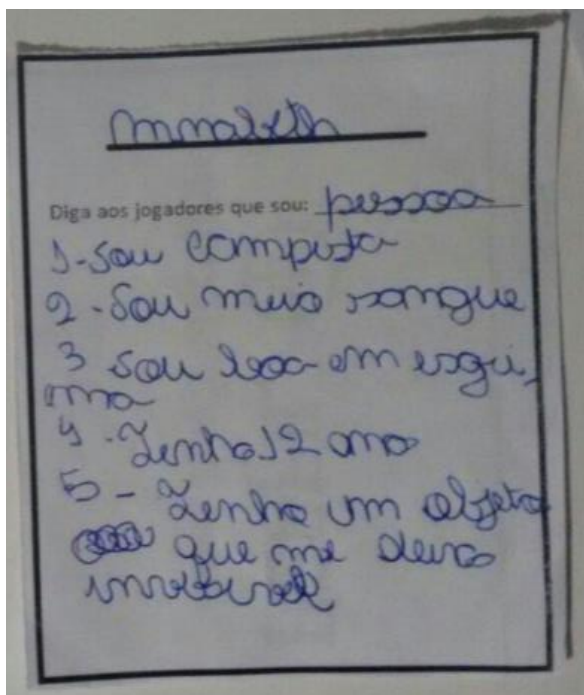 Annabeth
Diga aos jogadores que sou: pessoa
1-Sou campista
2-Sou meio sangue
3 Sou boa em esgri-
ma
4-Tenho 12 ano
5-Tenho um objeto
que me deixa
invisivel